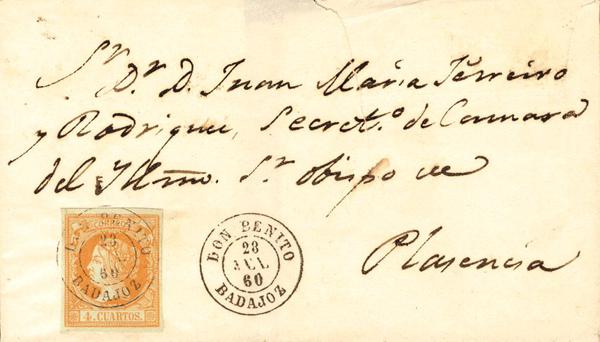 Sr. Dr. D. Juan Maria Ferreiro
y Rodriguez, Secreto. de Camara
del Ilmo. Sr. obispo de
Plasencia
CORREOS
DON BENITO
23
JUL
60
BADAJOZ
4. CUARTOS.
DON BENITO
23
JUL
60
BADAJOZ